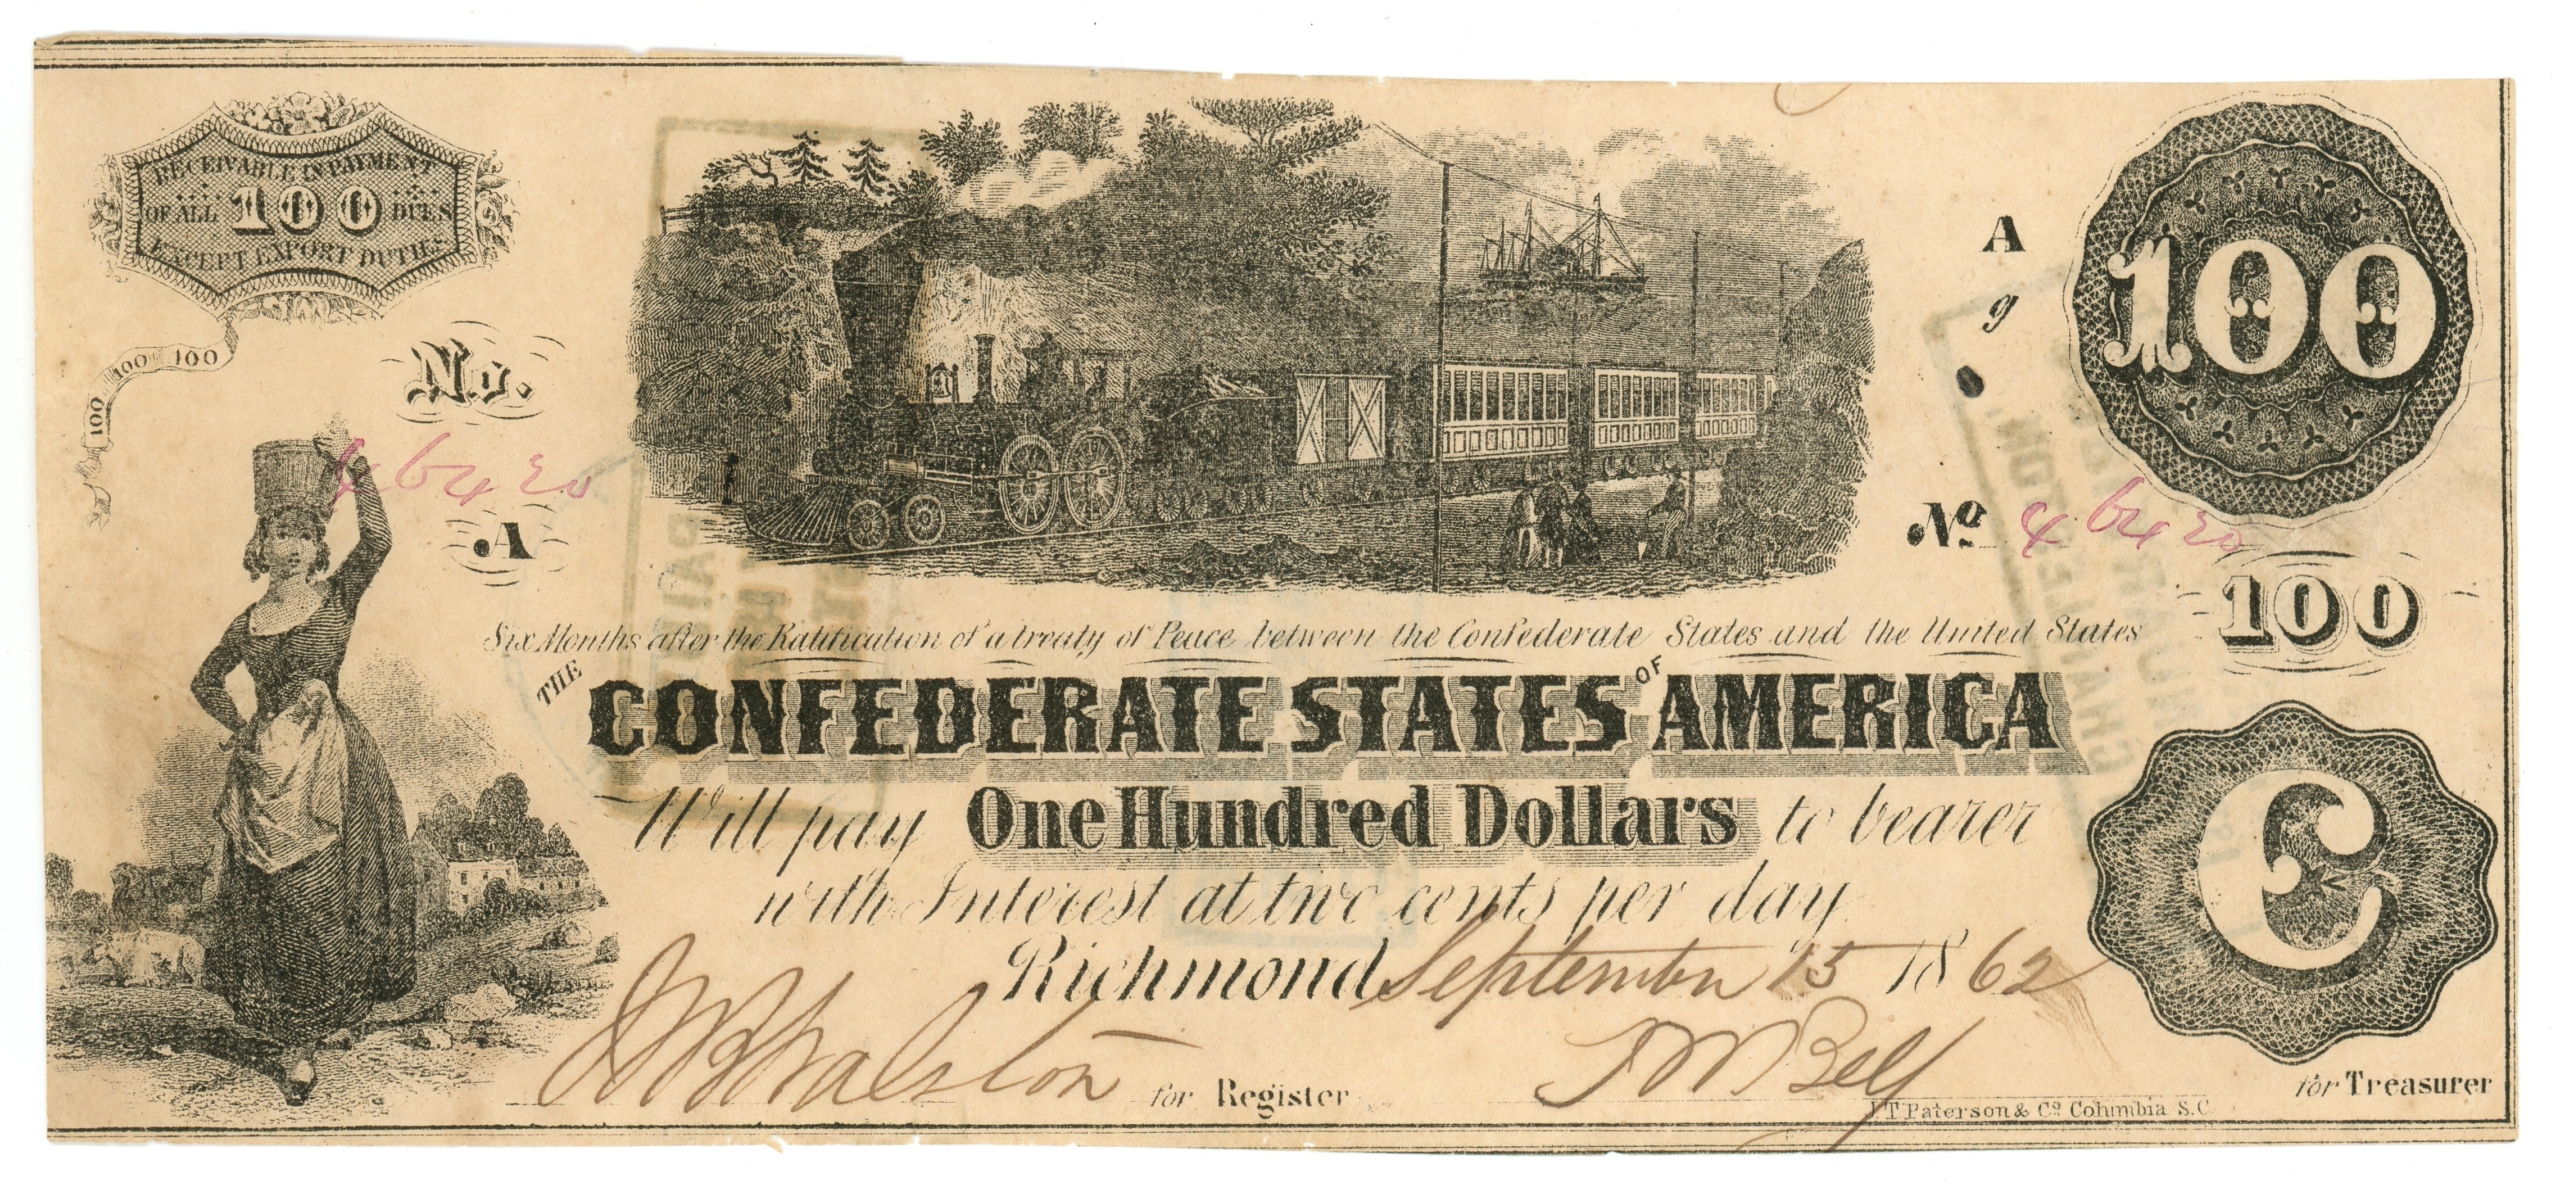 RECEIVABLE IN PAYMENT
OF ALL 100 DUES
EXCEPT EXPORT DUTIES
100 100 100
No.
46420
A
A
9
100
No. 46420
100
Six Months after the Ratification of a treaty of Peace between the Confederate States and the United States
THE CONFEDERATE STATES OF AMERICA
Will pay One Hundred Dollars to bearer
with Interest at two cents per day
Richmond September 15 1862
C
for Register
for Treasurer
J.T. Paterson & Co. Columbia S.C